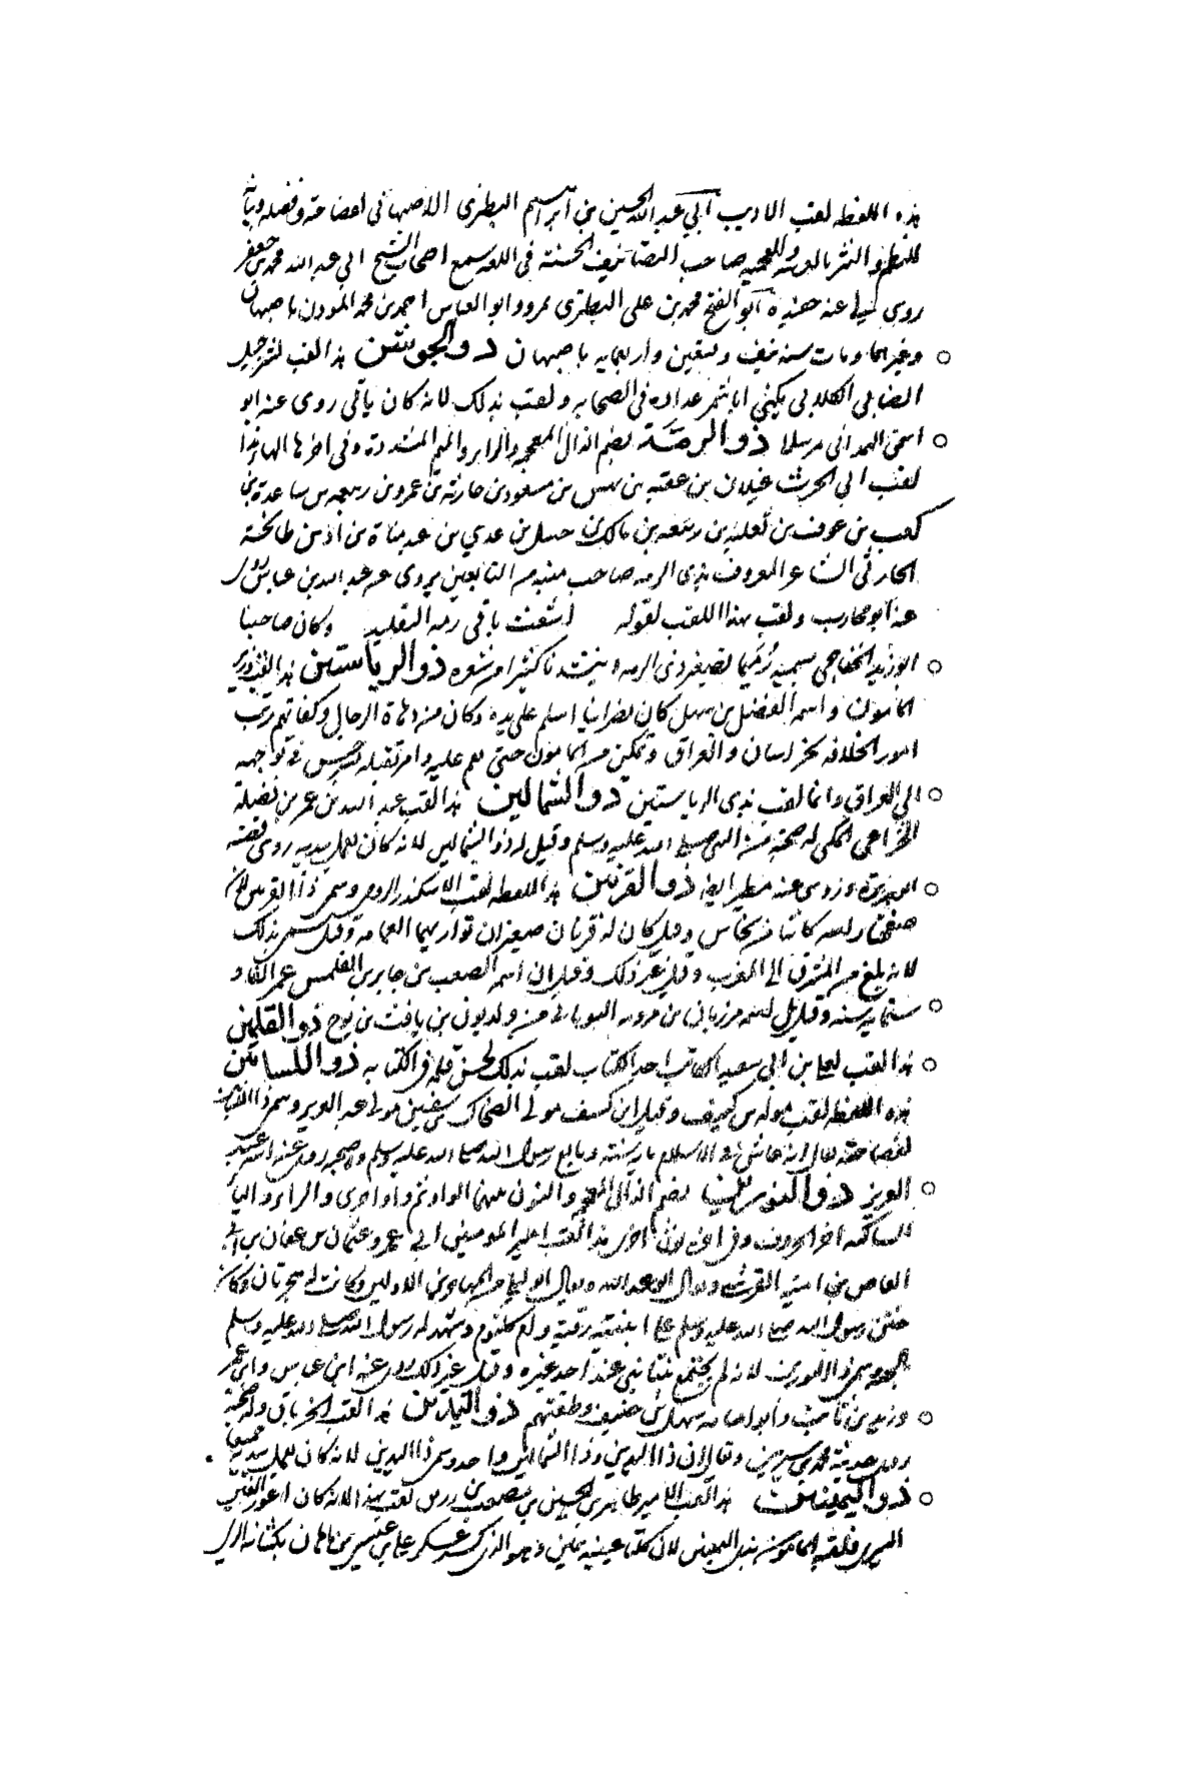 هذه اللفظه لقب الاديب ابي عبد الله الحسين بن ابراهيم النطنزى الاصبهانى لفصاحته وفضله وبيانه
للنظم والنثر بالعربيه والعجميه صاحب التصانيف الحسنة فى اللغه سمع اصحاب الشيخ ابي عبد الله محمد بن جعفر
روى لي عنه حفيده ابو الفتح محمد بن على النطنزى بمرو وابو العباس احمد بن محمد المؤدن باصبهان
وغيرهما ومات سنه نيف وتسعين واربعمايه باصبهان ذو الجوشن هذا لقب لشرحبيل
الضبابى الكلابى يكنى ابا شمر عداده فى الصحابه ولقب بذلك لانه كان ناتى روى عنه ابو
اسحق الهمدانى مرسلا ذو الرمَّة بضم الذال المعجمه والراء والميم المشددة وفى اخرها الهاء هذا
لقب ابي الحرث غيلان بن عقبه بن بهيس بن مسعود بن حارثة بن عمرو بن ربيعه بن ساعدة بن
كعب بن عوف بن ثعلبه بن ربيعه بن مالك بن حسل بن عدي بن عبد مناة بن اد بن طابخة
الحارثى الشاعر المعروف بذى الرمه صاحب ميه من التابعين يروى عن عبد الله بن عباس روى
عنه ابو محارب ولقب بهذا اللقب لقوله اشعث باقى رمه التقليد وكان صاحبنا
ابو زيد الخفاجى يسميه رُمَيما تصغير ذى الرمه وينشدنا كثيرا من شعره ذو الرياستين هذا لقب وزير
المامون واسمه الفضل بن سهل كان نصرانيا اسلم على يديه وكان من دهاة الرجال وكفاتهم رتب
امور الخلافه بخراسان والعراق وتمكن من المامون حتى علیه وامر بقتله بسرخس فى توجهه
الى العراق وانما لقب بذى الرياستين ذو الشمالين هذا لقب عبد الله بن عمر بن نضيلة
الخزاعى المكى له صحبة من النبى صلى الله عليه وسلم وقيل له ذو الشمالين لانه كان يعمل بيديه روى قصته
ابو هريرة وروى عنه مطير ايضا ذو القرنين هذا اللفظه لقب الاسكندر الرومى وسمى ذا القرنين لان
صفحتى راسه كانتا من نحاس وقيل كان له قرنان صغيران تواريهما العمامه وقيل سمى بذلك
لانه بلغ من المشرق الى المغرب وقيل غير ذلك وقيل ان اسمه الصعب بن جابر بن القلمس عمر الفا و
ستمايه سنه وقيل اسمه مرزبان بن مرويه اليونانى من ولد يونن بن يافث بن نوح ذو القلمين
هذا لقب لعلى بن ابي سعيد الكاتب احد الكتاب لقب بذلك لحسن قلمه فى الكتابه ذو اللسانين
هذه اللفظه لقب موله بن كثيف وقيل ابن كسف مولى الضحاك بن سفين مولى عبد العزيز وسمى ذا اللسانين
لفصاحته يقال انه عاش فى الاسلام مايه سنة وبايع رسول الله صلى الله عليه وسلم وصحبه روى عنه ابنه عبد
العزيز ذو النورين بضم الذال المعجمه والنون بينهما الواو ثم واو اخرى والراء والياء
الساكنه اخر الحروف وفى اخره نون اخرى هذا لقب امير المومنين ابي عمرو عثمان بن عفان بن ابي
العاص بن امية القرشى ويقال ابو عبد الله ويقال ابو ليلى من المهاجرين الاولين وكانت له هجرتان وكان
ختن رسول الله صلى الله عليه وسلم على ابنتيه رقية وام كلثوم وشهد له رسول الله صلى الله عليه وسلم
بالجنه وسمى ذا النورين لانه لم يجتمع بنتا نبى عند احد غيره وقيل غير ذلك روى عنه ابن عباس وابن عمر
وزيد بن ثابت وابو امامه سهل بن حنيف وطبقتهم ذو اليدين هذا لقب الخرباق وله صحبة
روى حديثه محمد بن سيرين ويقال ان ذا اليدين وذا الشمالين واحد وسمى ذا اليدين لانه كان يعمل بيديه جميعا
ذو اليمينين هذا لقب الامير طاهر بن الحسين بن مصعب بن رزيق لقب بهذا لانه كان اعور العين
اليسرى فلقبه المامون بذى اليمينين لان كلتا عينيه يمين وهو الذى كسر عسكر على بن عيسى بن ماهان